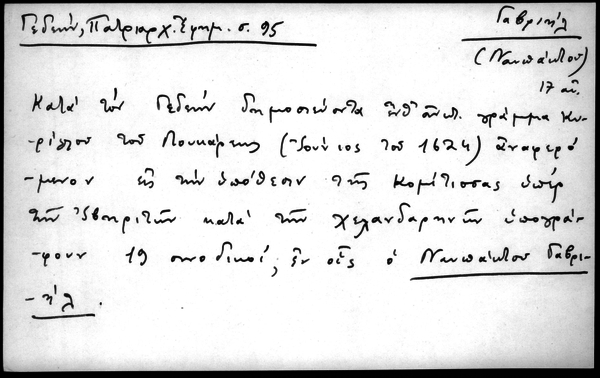 Γεδεών, Πατριαρχ. Ἐφημ. σ. 95
Γαβριήλ
(Ναυπάκτου)
17 αἰ.
Κατά τόν Γεδεών δημοσιεύοντα ἐνθ' ἀνωτ. γράμμα Κυ-
-ρίλλου τοῦ Λουκάρεως (Ἰούνιος τοῦ 1624) ἀναφερό
-μενον εἰς τήν ὑπόθεσιν τῆς Κομίτισσας ὑπέρ
τῶν Ἰβηριτῶν κατά τῶν Χελανδαρηνῶν ὑπογρά-
-φουν 19 συνοδικοί, ἐν οἷς ὁ Ναυπάκτου Γαβρι-
-ήλ.